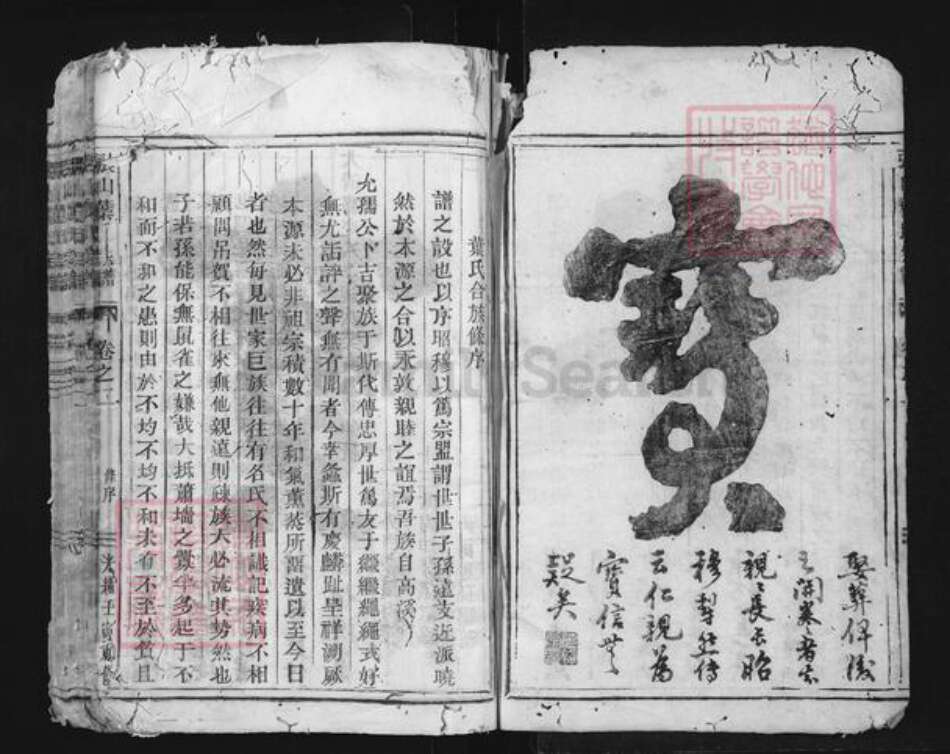 寶
娶葬俾後
之開塞者知
親親長長昭
穆犁然傳
云仁親為
寶信無
疑矣
葉氏合族條序
譜之設也以序昭穆以篤宗盟謂世世子孫遠支近派曉
然於本源之合以永敦親睦之誼焉吾族自高溪
允孺公卜吉聚族于斯代傳忠厚世篤友于繼繼繩繩式好
無尤詬誶之聲無有聞者今幸螽斯有慶麟趾呈祥溯厥
本源未必非祖宗積數十年和氣薰蒸所留遺以至今日
者也然每見世家巨族往往有名氏不相識記疾病不相
顧問吊賀不相往來無他親遠則疎族大必流其勢然也
子若孫能保無鼠雀之嫌哉大抵蕭墻之釁半多起于不
和而不和之患則由於不均不均不和未有不至於貧且
山葉
卷之
條序
光緒壬寅